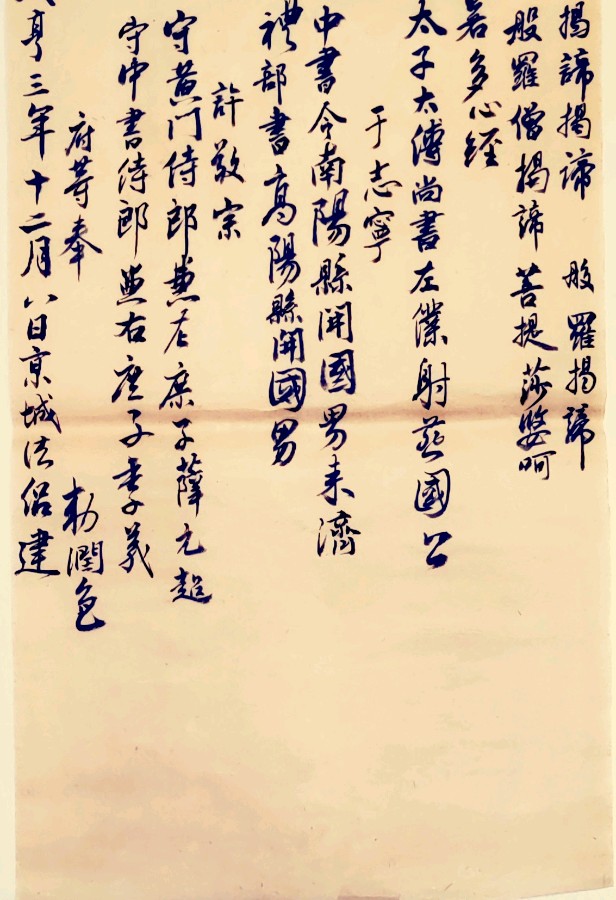 揭諦揭諦 般羅揭諦
般羅僧揭諦 菩提莎婆呵
若多心經
太子太傅尚書左僕射燕國公
于志寧
中書令南陽縣開國男来濟
禮部書高陽縣開國男
許敬宗
守黄门侍郎兼左庶子薛元超
守中書侍郎兼右庶子李義
府等奉 勑潤色
亨三年十二月八日京城法侶建